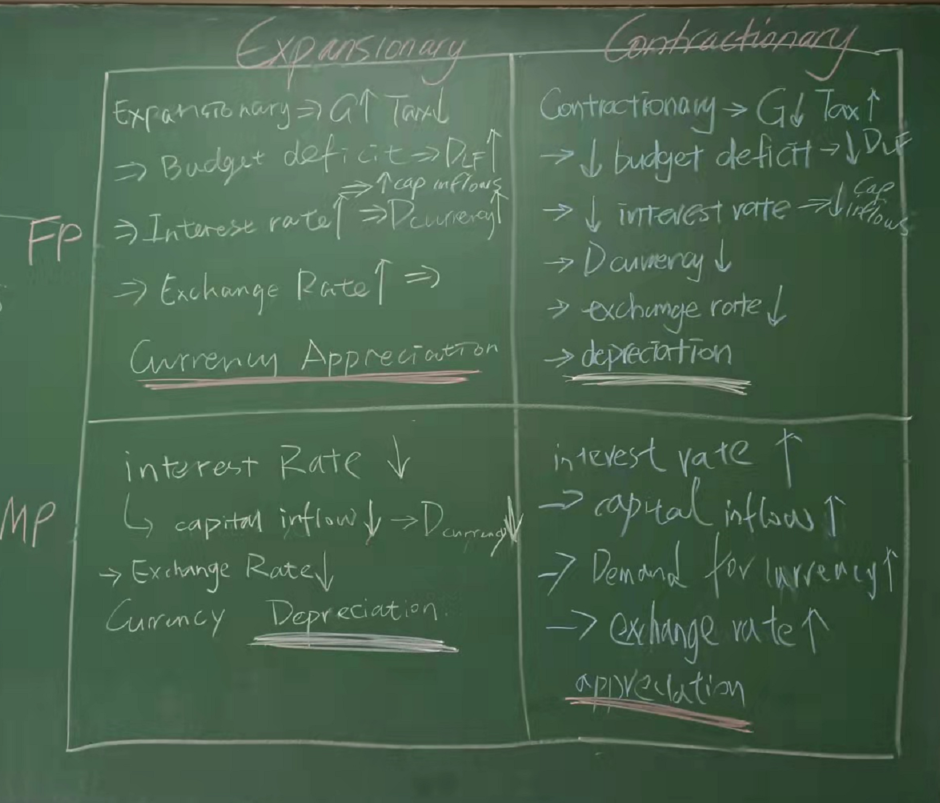 Expansionary
Contractionary
FP
Expansionary ⇒ G↑ Tax↓
⇒ Budget deficit ⇒ DLF↑
⇒ ↑cap inflows
⇒ Interest rate↑ ⇒ Dcurrency↑
⇒ Exchange Rate↑ ⇒
Currency Appreciation
Contractionary → G↓ Tax↑
→ ↓ budget deficit → ↓DLF
→ ↓ interest rate ⇒ ↓Cap inflows
→ Dcurrency↓
→ exchange rate↓
→ depreciation
MP
interest Rate ↓
↳ capital inflow↓ → Dcurrency↓
→ Exchange Rate↓
Currency Depreciation
interest rate ↑
→ capital inflow↑
→ Demand for currency↑
→ exchange rate↑
appreciation